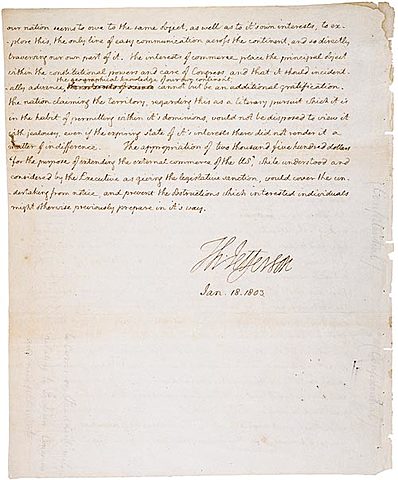 our nation seems to owe to the same object, as well as to it's own interests, to ex-
-plore this, the only line of easy communication across the continent, and so directly
traversing our own part of it. the interests of commerce place the principal object
within the constitutional powers and care of Congress, and that it should incident-
the geographical knowledge of our own continent
-ally advance cannot but be an additional gratification.
the nation claiming the territory, regarding this as a literary pursuit which it is
in the habit of permitting within it's dominions, would not be disposed to view it
with jealousy, even if the expiring state of it's interests there did not render it a
matter of indifference. The appropriation of two thousand five hundred dollars
"for the purpose of extending the external commerce of the US," while understood and
considered by the Executive as giving the legislative sanction, would cover the un-
-dertaking from notice, and prevent the obstructions which interested individuals
might otherwise previously prepare in it's way.
Th: Jefferson
Jan. 18. 1803.